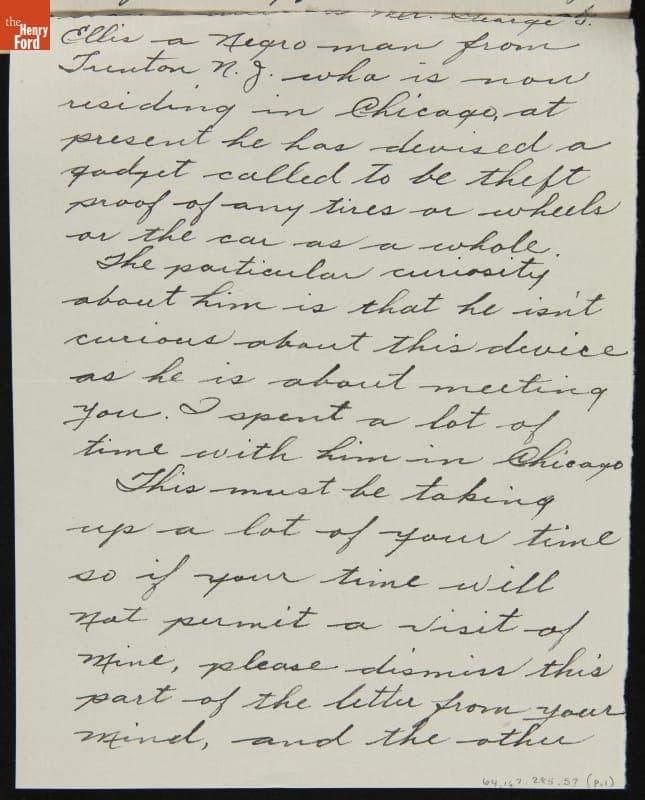 the
Henry
Ford
Mr. George S.
Ellis a Negro man from
Trenton N. J. who is now
residing in Chicago, at
present he has devised a
gadget called to be theft
proof of any tires or wheels
or the car as a whole.
The particular curiosity
about him is that he isn't
curious about this device
as he is about meeting
you. I spent a lot of
time with him in Chicago
This must be taking
up a lot of your time
so if your time will
not permit a visit of
mine, please dismiss this
part of the letter from your
mind, and the other
64.167.285.57 (p.1)